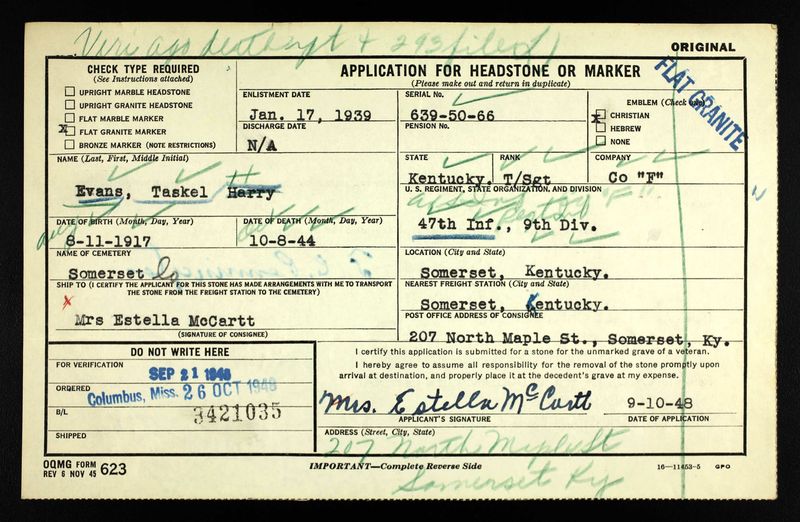 ORIGINAL
CHECK TYPE REQUIRED
(See Instructions attached)
UPRIGHT MARBLE HEADSTONE
UPRIGHT GRANITE HEADSTONE
FLAT MARBLE MARKER
X FLAT GRANITE MARKER
BRONZE MARKER (NOTE RESTRICTIONS)
APPLICATION FOR HEADSTONE OR MARKER
(Please make out and return in duplicate)
ENLISTMENT DATE
Jan. 17, 1939
DISCHARGE DATE
N/A
SERIAL No.
639-50-66
PENSION No.
EMBLEM (Check one)
X CHRISTIAN
HEBREW
NONE
FLAT GRANITE
NAME (Last, First, Middle Initial)
Evans, Taskel Harry
H
STATE
Kentucky,
RANK
T/Sgt
COMPANY
Co "F"
U. S. REGIMENT, STATE ORGANIZATION, AND DIVISION
47th Inf., 9th Div.
DATE OF BIRTH (Month, Day, Year)
8-11-1917
DATE OF DEATH (Month, Day, Year)
10-8-44
NAME OF CEMETERY
Somerset
LOCATION (City and State)
Somerset, Kentucky.
SHIP TO (I CERTIFY THE APPLICANT FOR THIS STONE HAS MADE ARRANGEMENTS WITH ME TO TRANSPORT
THE STONE FROM THE FREIGHT STATION TO THE CEMETERY)
Mrs Estella McCartt
(SIGNATURE OF CONSIGNEE)
NEAREST FREIGHT STATION (City and State)
Somerset, Kentucky.
POST OFFICE ADDRESS OF CONSIGNEE
207 North Maple St., Somerset, Ky.
DO NOT WRITE HERE
FOR VERIFICATION
SEP 21 1948
ORDERED
Columbus, Miss. 26 OCT 1948
B/L
3421035
SHIPPED
I certify this application is submitted for a stone for the unmarked grave of a veteran.
I hereby agree to assume all responsibility for the removal of the stone promptly upon
arrival at destination, and properly place it at the decedent's grave at my expense.
Mrs. Estella McCartt
9-10-48
APPLICANT'S SIGNATURE
DATE OF APPLICATION
ADDRESS (Street, City, State)
207 North Maple St
Somerset Ky
OQMG FORM
REV 6 NOV 45 623
IMPORTANT—Complete Reverse Side
16—11453-5 GPO